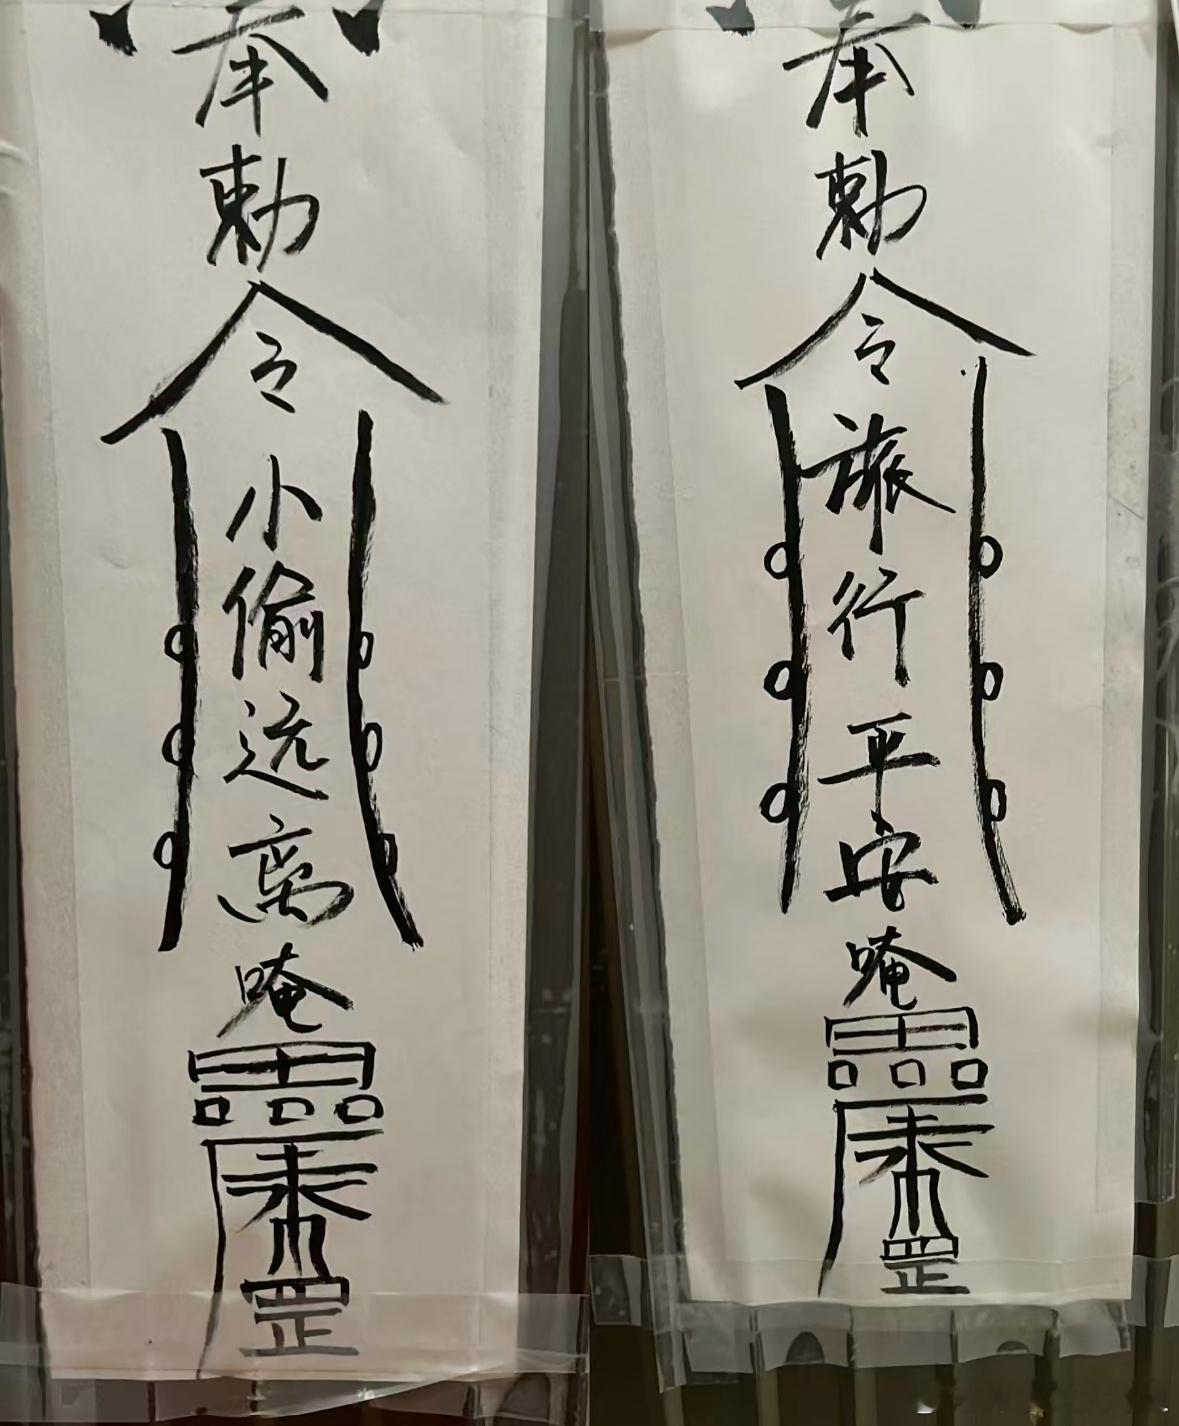 奉勅令
小偷远离
唵
罡
奉勅令
旅行平安
唵
罡